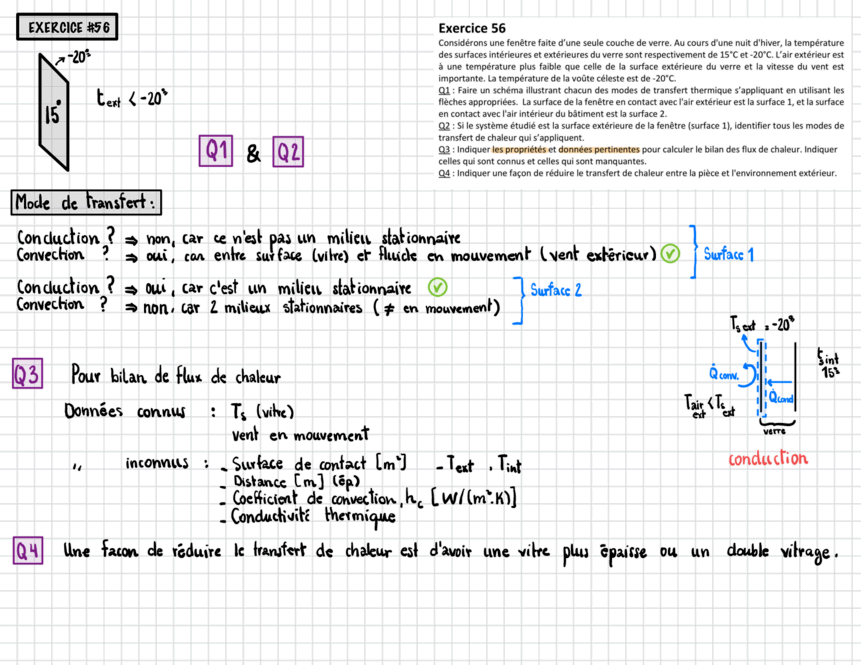 EXERCICE #56
-20°
15°
text < -20°
Q1 & Q2
Exercice 56
Considérons une fenêtre faite d'une seule couche de verre. Au cours d'une nuit d'hiver, la température
des surfaces intérieures et extérieures du verre sont respectivement de 15°C et -20°C. L'air extérieur est
à une température plus faible que celle de la surface extérieure du verre et la vitesse du vent est
importante. La température de la voûte céleste est de -20°C.
Q1 : Faire un schéma illustrant chacun des modes de transfert thermique s'appliquant en utilisant les
flèches appropriées. La surface de la fenêtre en contact avec l'air extérieur est la surface 1, et la surface
en contact avec l'air intérieur du bâtiment est la surface 2.
Q2 : Si le système étudié est la surface extérieure de la fenêtre (surface 1), identifier tous les modes de
transfert de chaleur qui s'appliquent.
Q3 : Indiquer les propriétés et données pertinentes pour calculer le bilan des flux de chaleur. Indiquer
celles qui sont connus et celles qui sont manquantes.
Q4 : Indiquer une façon de réduire le transfert de chaleur entre la pièce et l'environnement extérieur.
Mode de transfert :
Conduction ? ⇒ non, car ce n'est pas un milieu stationnaire
Convection ? ⇒ oui, car entre surface (vitre) et fluide en mouvement (vent extérieur)
Surface 1
Conduction ? ⇒ oui, car c'est un milieu stationnaire
Convection ? ⇒ non, car 2 milieux stationnaires (≠ en mouvement)
Surface 2
Ts ext = -20°
ts int
15°
Q̇conv.
Q̇cond
Tair ext < Ts ext
verre
conduction
Q3 Pour bilan de flux de chaleur
Données connus : Ts (vitre)
vent en mouvement
,, inconnus : - Surface de contact [m²] - Text, Tint
- Distance [m] (ép)
- Coefficient de convection, hc [W/(m².K)]
- Conductivité thermique
Q4 Une facon de réduire le transfert de chaleur est d'avoir une vitre plus épaisse ou un double vitrage.